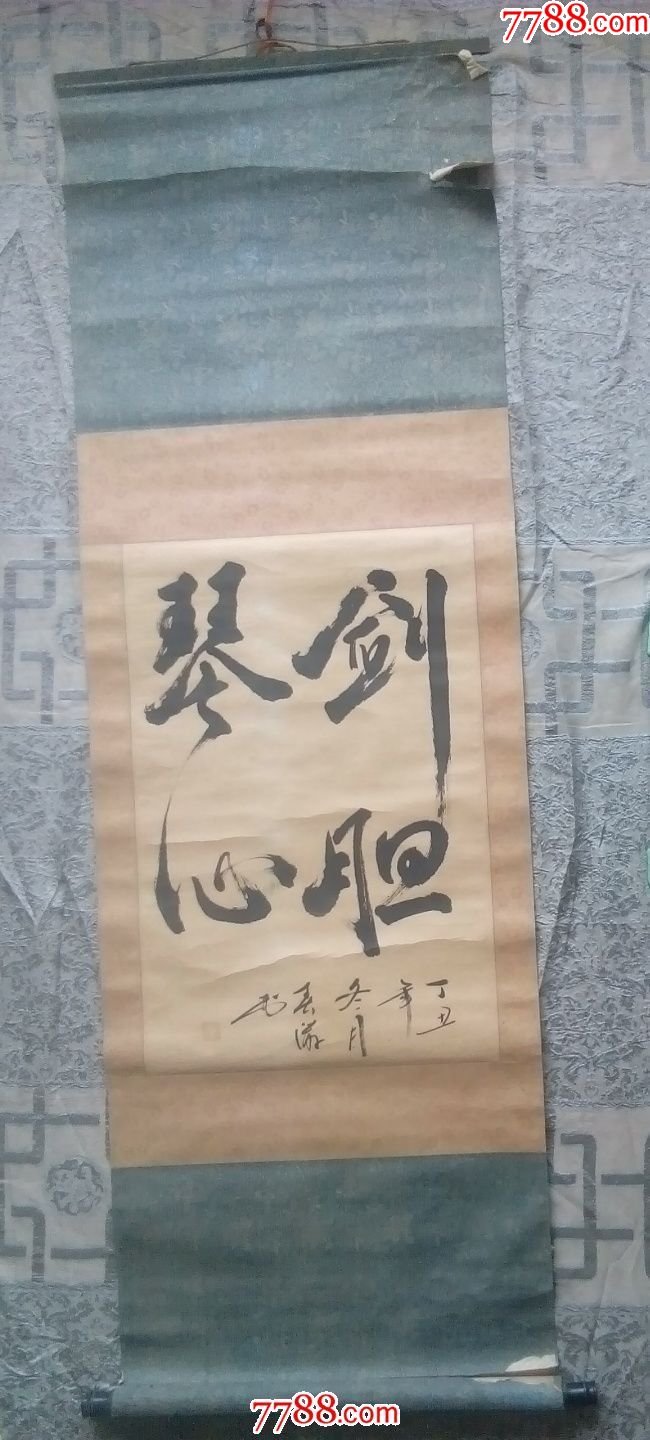 7788.com
剑胆
琴心
丁丑
年
冬月
春
书
7788.com